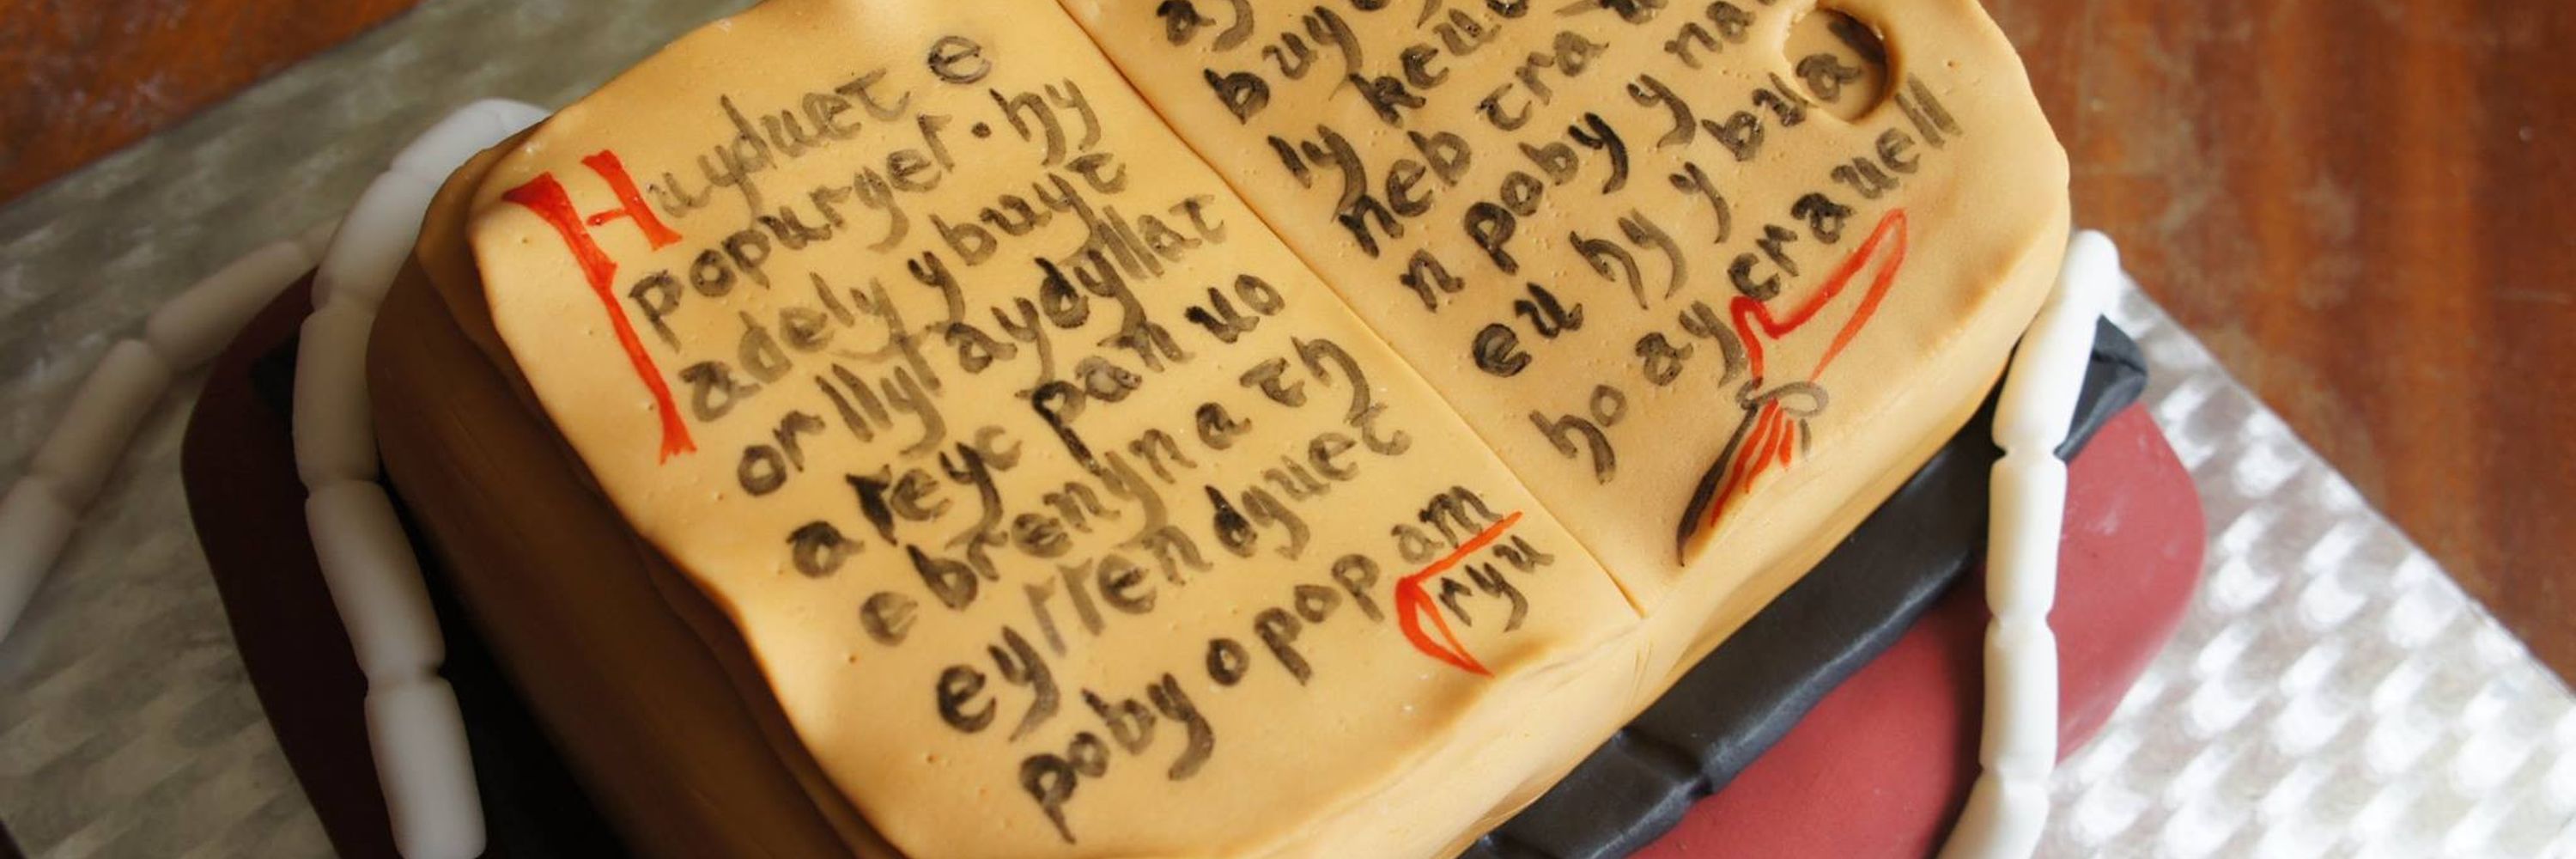 Huyduet e
popuryeſ · hy
adely y buyt
or llyſ aydyllat
a reyt pan uo
e brenyn a th
eyſſen dyuet
poby o pop am
ryu
buy
ly keu
neb tra
n poby y na
eu hy y bual
ho ay crauell